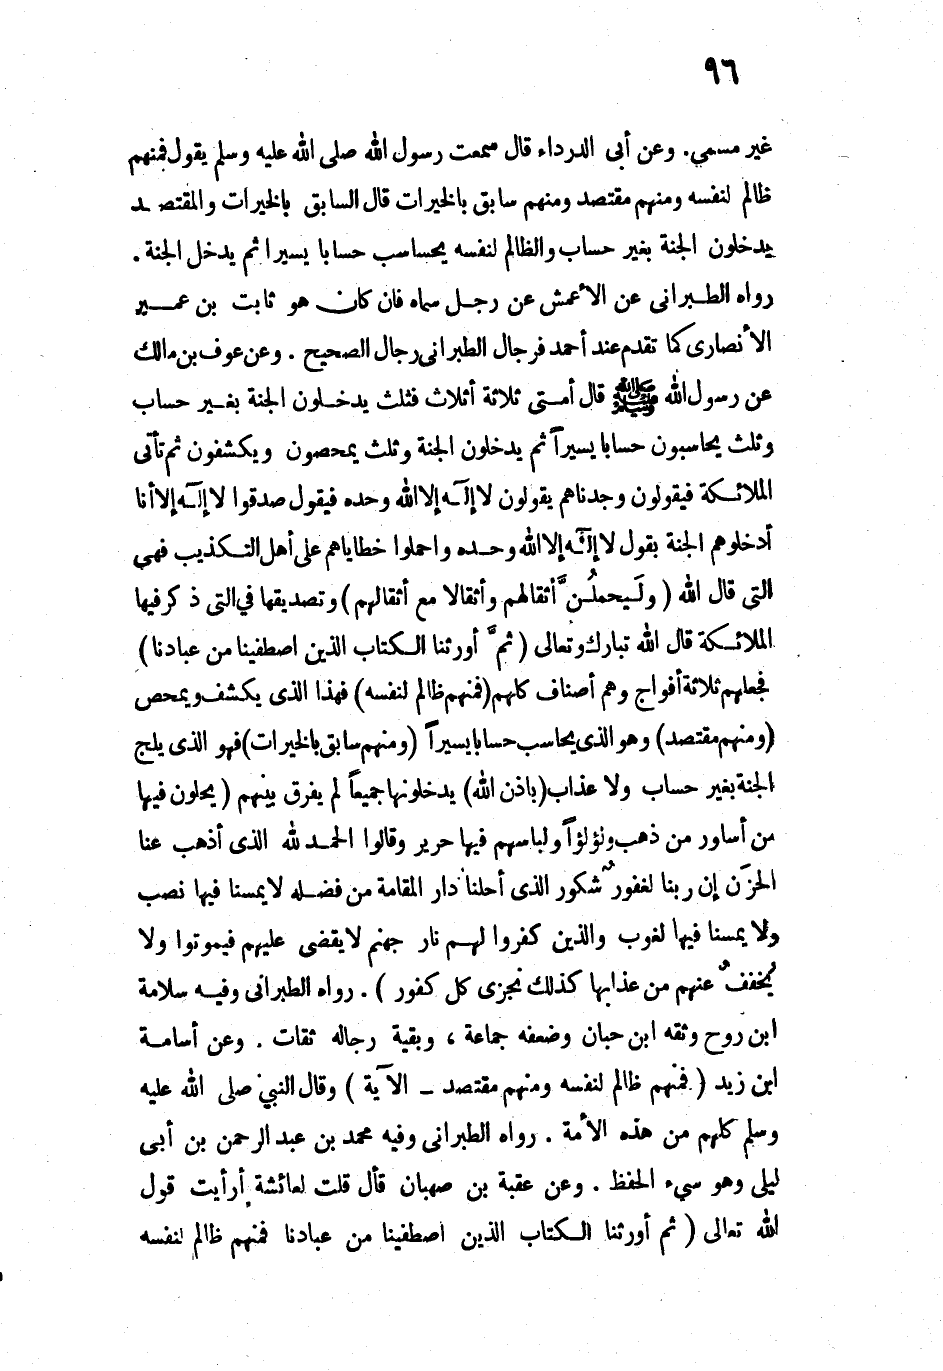 ٩٦
غير مسمي. وعن أبى الدرداء قال سمعت رسول الله صلى الله عليه وسلم يقول فمنهم
ظالم لنفسه ومنهم مقتصد ومنهم سابق بالخيرات قال السابق بالخيرات والمقتصد
يدخلون الجنة بغير حساب والظالم لنفسه يحساسب حسابا يسيرا ثم يدخل الجنة .
رواه الطبرانى عن الأعمش عن رجل سماه فان كان هو ثابت بن عمير
الأنصارى كما تقدم عند أحمد فرجال الطبرانى رجال الصحيح . وعن عوف بن مالك
عن رسول الله ﷺ قال أمتى ثلاثة أثلاث فثلث يدخلون الجنة بغير حساب
وثلث يحاسبون حسابا يسيراً ثم يدخلون الجنة وثلث يمحصون ويكشفون ثم تأتى
الملائكة فيقولون وجدناهم يقولون لا إلٓه إلا الله وحده فيقول صدقوا لا إلٓه إلا أنا
أدخلوهم الجنة بقول لا إلٓه إلا الله وحده واحملوا خطاياهم على أهل التكذيب فهي
التى قال الله ( ولَيحملُنَّ أثقالهم وأثقالا مع أثقالهم ) وتصديقها في التى ذكر فيها
الملائكة قال الله تبارك وتعالى ( ثمَّ أورثنا الكتاب الذين اصطفينا من عبادنا )
فجعلهم ثلاثة أفواج وهم أصناف كلهم (فمنهم ظالم لنفسه) فهذا الذى يكشف ويمحص
(ومنهم مقتصد) وهو الذى يحاسب حسابا يسيراً (ومنهم سابق بالخيرات) فهو الذى يلج
الجنة بغير حساب ولا عذاب (باذن الله) يدخلونها جميعاً لم يفرق بينهم ( يحلون فيها
من أساور من ذهب ولؤلؤاً ولباسهم فيها حرير وقالوا الحمد لله الذى أذهب عنا
الحزَن إن ربنا لغفورٌ شكور الذى أحلنا دار المقامة من فضله لا يمسنا فيها نصب
ولا يمسنا فيها لغوب والذين كفروا لهم نار جهنم لا يقضى عليهم فيموتوا ولا
يُخففُ عنهم من عذابها كذلك نجزى كل كفور ) . رواه الطبرانى وفيه سلامة
ابن روح وثقه ابن حبان وضعفه جماعة ، وبقية رجاله ثقات . وعن أسامة
ابن زيد ( فمنهم ظالم لنفسه ومنهم مقتصد ـ الآية ) وقال النبي صلى الله عليه
وسلم كلهم من هذه الأمة . رواه الطبرانى وفيه محمد بن عبد الرحمن بن أبى
ليلى وهو سيء الحفظ . وعن عقبة بن صهبان قال قلت لعائشة أرأيت قول
الله تعالى ( ثم أورثنا الكتاب الذين اصطفينا من عبادنا فمنهم ظالم لنفسه